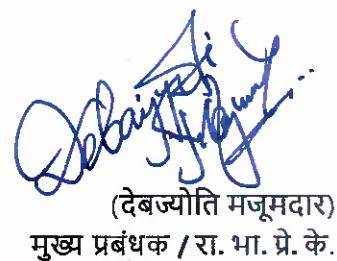 Debajyoti Majumdar
(देबज्योति मजूमदार)
मुख्य प्रबंधक / रा. भा. प्रे. के.